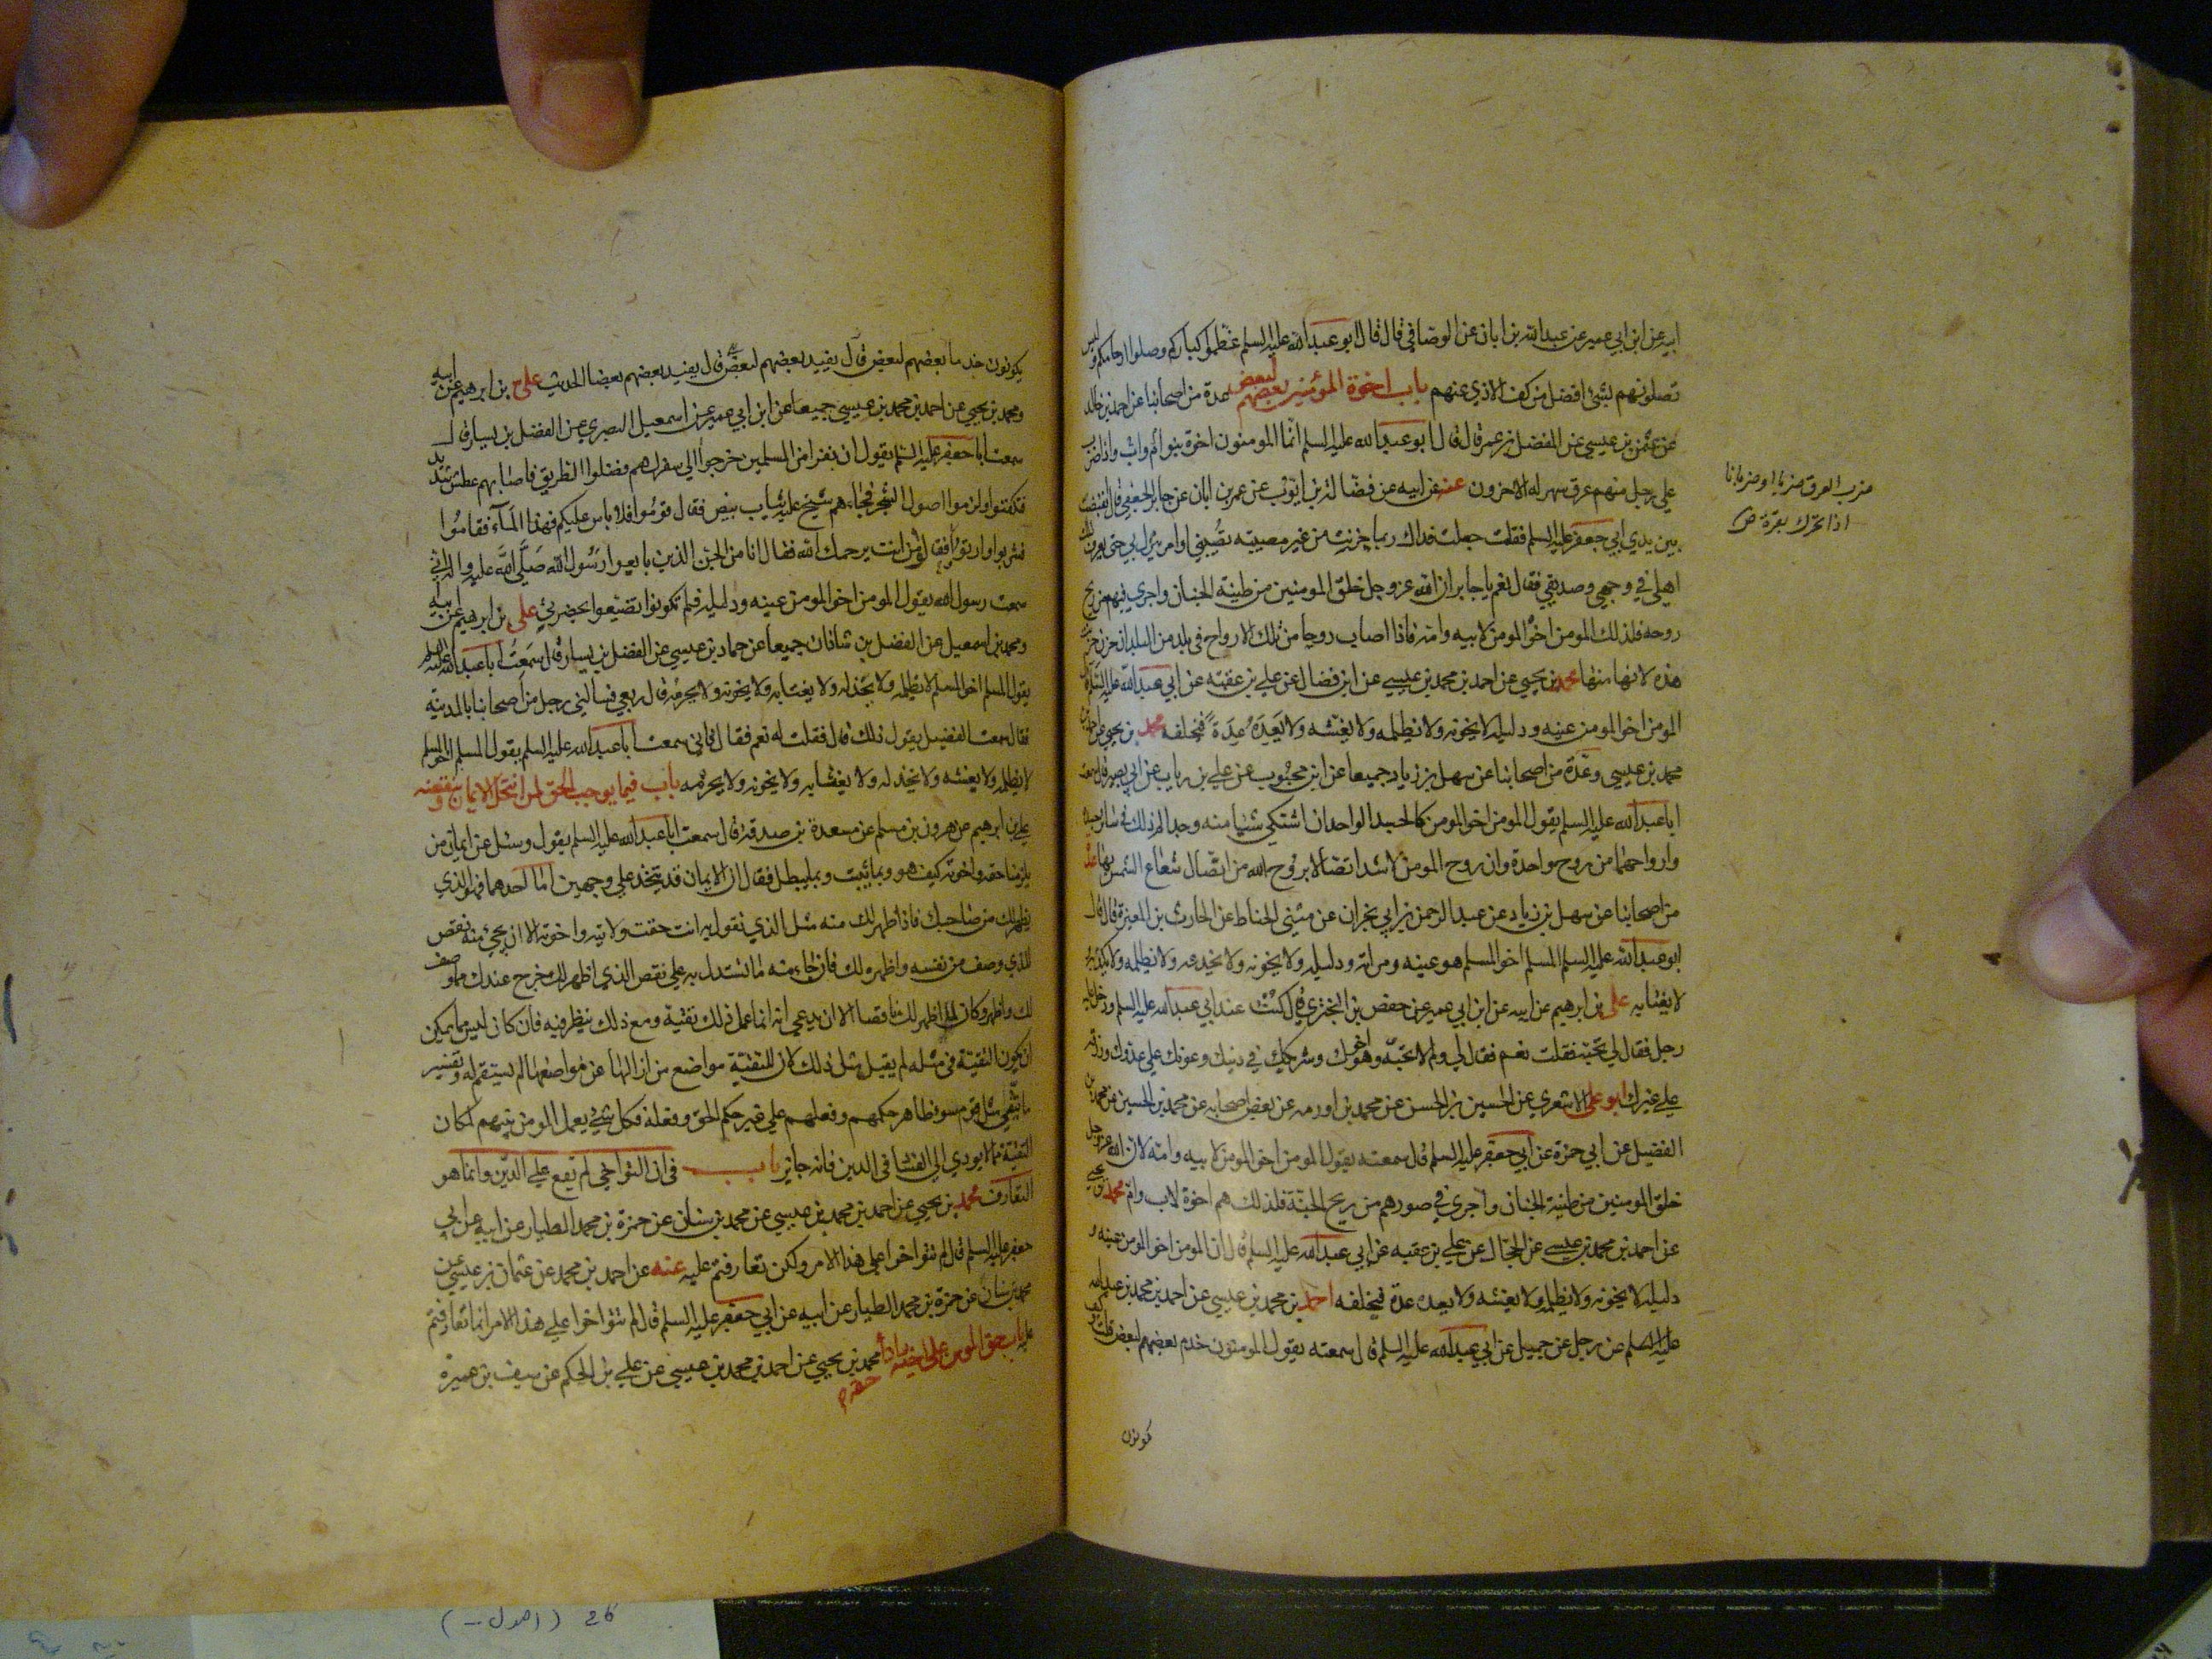 ابيه عن ابن ابي عمير عن عبد الله بن ابان عن الوصافي قال قال ابو عبد الله عليه السلم عظموا كباركم وصلوا ارحامكم وليس
تصلونهم بشئ افضل من كف الاذي عنهم باب اخوة المؤمنين بعضهم لبعض عدة من اصحابنا عن احمد بن خالد
عن عثمن بن عيسي عن المفضل بن عمر قال قال ابو عبد الله عليه السلم انما المومنون اخوة بنو اب وام واذا ضرب
علي رجل منهم عرق سهر له الاخرون عنه عن ابيه عن فضالة بن ايوب عن عمر بن ابان عن جابر الجعفي قال تقبضت
بين يدي ابي جعفر عليه السلم فقلت جعلت فداك ربما حزنت من غير مصيبة تصيبني او امر ينزل بي حتي يعرف ذلك
اهلي في وجهي وصديقي فقال نعم يا جابر ان الله عز وجل خلق المومنين من طينة الجنان واجري فيهم من ريح
روحه فلذلك المومن اخو المومن لابيه وامه فاذا اصاب روحا من تلك الارواح في بلد من البلدان حزن حزنت
هذه لانها منها محمد بن يحيي عن احمد بن محمد بن عيسي عن ابن فضال عن علي بن عقبة عن ابي عبد الله عليه السلم قال
المومن اخو المومن عينه ودليله لا يخونه ولا يظلمه ولا يغشه ولا يعده عدة فيخلفه محمد بن يحيي عن احمد بن
محمد بن عيسي وعدة من اصحابنا عن سهل بن زياد جميعا عن ابن محبوب عن علي بن رياب عن ابي بصير قال سمعت
ابا عبد الله عليه السلم يقول المومن اخو المومن كالجسد الواحد ان اشتكي شيا منه وجد الم ذلك في سائر جسده
وارواحهما من روح واحدة وان روح المومن لاشد اتصالا بروح الله من اتصال شعاع الشمس بها عدة
من اصحابنا عن سهل بن زياد عن عبد الرحمن بن ابي نجران عن مثني الحناط عن الحارث بن المغيرة قال قال
ابو عبد الله عليه السلم المسلم اخو المسلم هو عينه ومراته ودليله ولا يخونه ولا يخدعه ولا يظلمه ولا يكذبه
لا يغتابه علي بن ابرهيم عن ابيه عن ابن ابي عمير عن حفص بن البختري قال كنت عند ابي عبد الله عليه السلم ودخل عليه
رجل فقال لي تحبه فقلت نعم فقال لي ولم لا تحبه وهو اخوك وشريكك في دينك وعونك علي عدوك ورزقه
علي غيرك ابو علي الاشعري عن الحسين بن الحسن عن محمد بن اورمه عن بعض اصحابه عن محمد بن الحسين عن محمد بن
الفضيل عن ابي حمزة عن ابي جعفر عليه السلم قال سمعته يقول المومن اخو المومن لابيه وامه لان الله عز وجل
خلق المومنين من طينة الجنان واجري في صورهم من ريح الجنة فلذلك هم اخوة لاب وام محمد بن يحيي
عن احمد بن محمد بن عيسي عن الحجال عن علي بن عقبه عن ابي عبد الله عليه السلم قال ان المومن اخو المومن عينه و
دليله لا يخونه ولا يظلمه ولا يغشه ولا يعده عدة فيخلفه احمد بن محمد بن عيسي عن احمد بن محمد بن عبد الله
عليه السلم عن رجل عن جميل عن ابي عبد الله عليه السلم قال سمعته يقول المومنون خدم بعضهم لبعض قلت كيف
كونون
ضرب العرق ضربا وضربانا
اذا تحرك بقوة ص
يكونون خدما بعضهم لبعض قال يفيد بعضهم لبعض قال يفيد بعضهم بعضا الحديث علي بن ابرهيم عن ابيه
ومحمد بن يحيي عن احمد بن محمد بن عيسي جميعا عن ابن ابي عمير عن اسمعيل البصري عن الفضيل بن يسار قال
سمعت ابا جعفر عليه السلم يقول ان نفرا من المسلمين خرجوا الي سفر لهم فضلوا الطريق فاصابهم عطش شديد
فتكفنوا ولزموا اصول الشجر فجاءهم شيخ عليه ثياب بيض فقال قوموا فلا باس عليكم فهذا المآء فقاموا
فشربوا وارتووا فقالوا من انت يرحمك الله فقال انا من الجن الذين بايعوا رسول الله صلي الله عليه واله اني
سمعت رسول الله يقول المومن اخو المومن عينه ودليله فلم تكونوا تضيعوا بحضرتي علي بن ابرهيم عن ابيه
ومحمد بن اسمعيل عن الفضل بن شاذان جميعا عن حماد بن عيسي عن الفضل بن يسار قال سمعت ابا عبد الله عليه السلم
يقول المسلم اخو المسلم لا يظلمه ولا يخذله ولا يغتابه ولا يخونه ولا يحرمه قال ربعي فسالني رجل من اصحابنا بالمدينة
فقال سمعت الفضيل يقول ذلك قال فقلت له نعم فقال فاني سمعت ابا عبد الله عليه السلم يقول المسلم اخو المسلم
لا يظلمه ولا يغشه ولا يخذله ولا يغتابه ولا يخونه ولا يحرمه باب فيما يوجب الحق لمن انتحل الايمان وينقضه
علي بن ابرهيم عن هرون بن مسلم عن مسعدة بن صدقة قال سمعت ابا عبد الله عليه السلم يقول وسئل عن ايمان من
يلزمنا حقه واخوته كيف هو وبما يثبت وبما يبطل فقال ان الايمان قد يتخذ علي وجهين اما احدهما فهو الذي
يظهر لك من صاحبك فاذا ظهر لك منه مثل الذي تقول به انت حقت ولايته واخوته الا ان يجئ منه نقض
للذي وصف من نفسه واظهره لك فان جاء منه ما تستدل به علي نقض الذي اظهر لك خرج عندك مما وصف
لك واظهر وكان لما اظهر لك ناقضا الا ان يدعي انه انما عمل ذلك تقية ومع ذلك ينظر فيه فان كان ليس مما يمكن
ان يكون التقية في مثله لم يقبل مثل ذلك لان للتقية مواضع من ازالها عن مواضعها لم تستقم له وتفسير
ما يتقي مثل قوم سوء ظاهر حكمهم وفعلهم علي غير حكم الحق وفعله فكل شئ يعمل المومن بينهم لمكان
التقية مما لا يودي الي الفساد في الدين فانه جائز باب في ان التواخي لم يقع علي الدين وانما هو
التعارف محمد بن يحيي عن احمد بن محمد بن عيسي عن محمد بن سنان عن حمزة بن محمد الطيار عن ابيه عن ابي
جعفر عليه السلم قال لم تتواخوا علي هذا الامر ولكن تعارفتم عليه عنه عن احمد بن محمد عن عثمان بن عيسي عن
محمد بن سنان عن حمزة بن محمد الطيار عن ابيه عن ابي جعفر عليه السلم قال لم تتواخوا علي هذا الامر انما تعارفتم
عليه باب حق المومن علي اخيه واداء حقه محمد بن يحيي عن احمد بن محمد بن عيسي عن علي بن الحكم عن سيف بن عميرة
26 (اصول --)